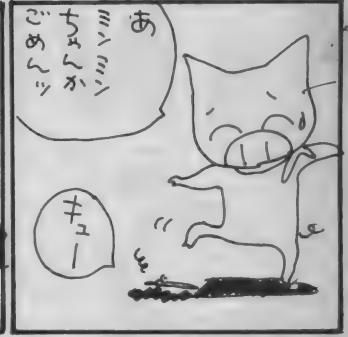 あ
ミンミン
ちゃんか
ごめんッ
キュー